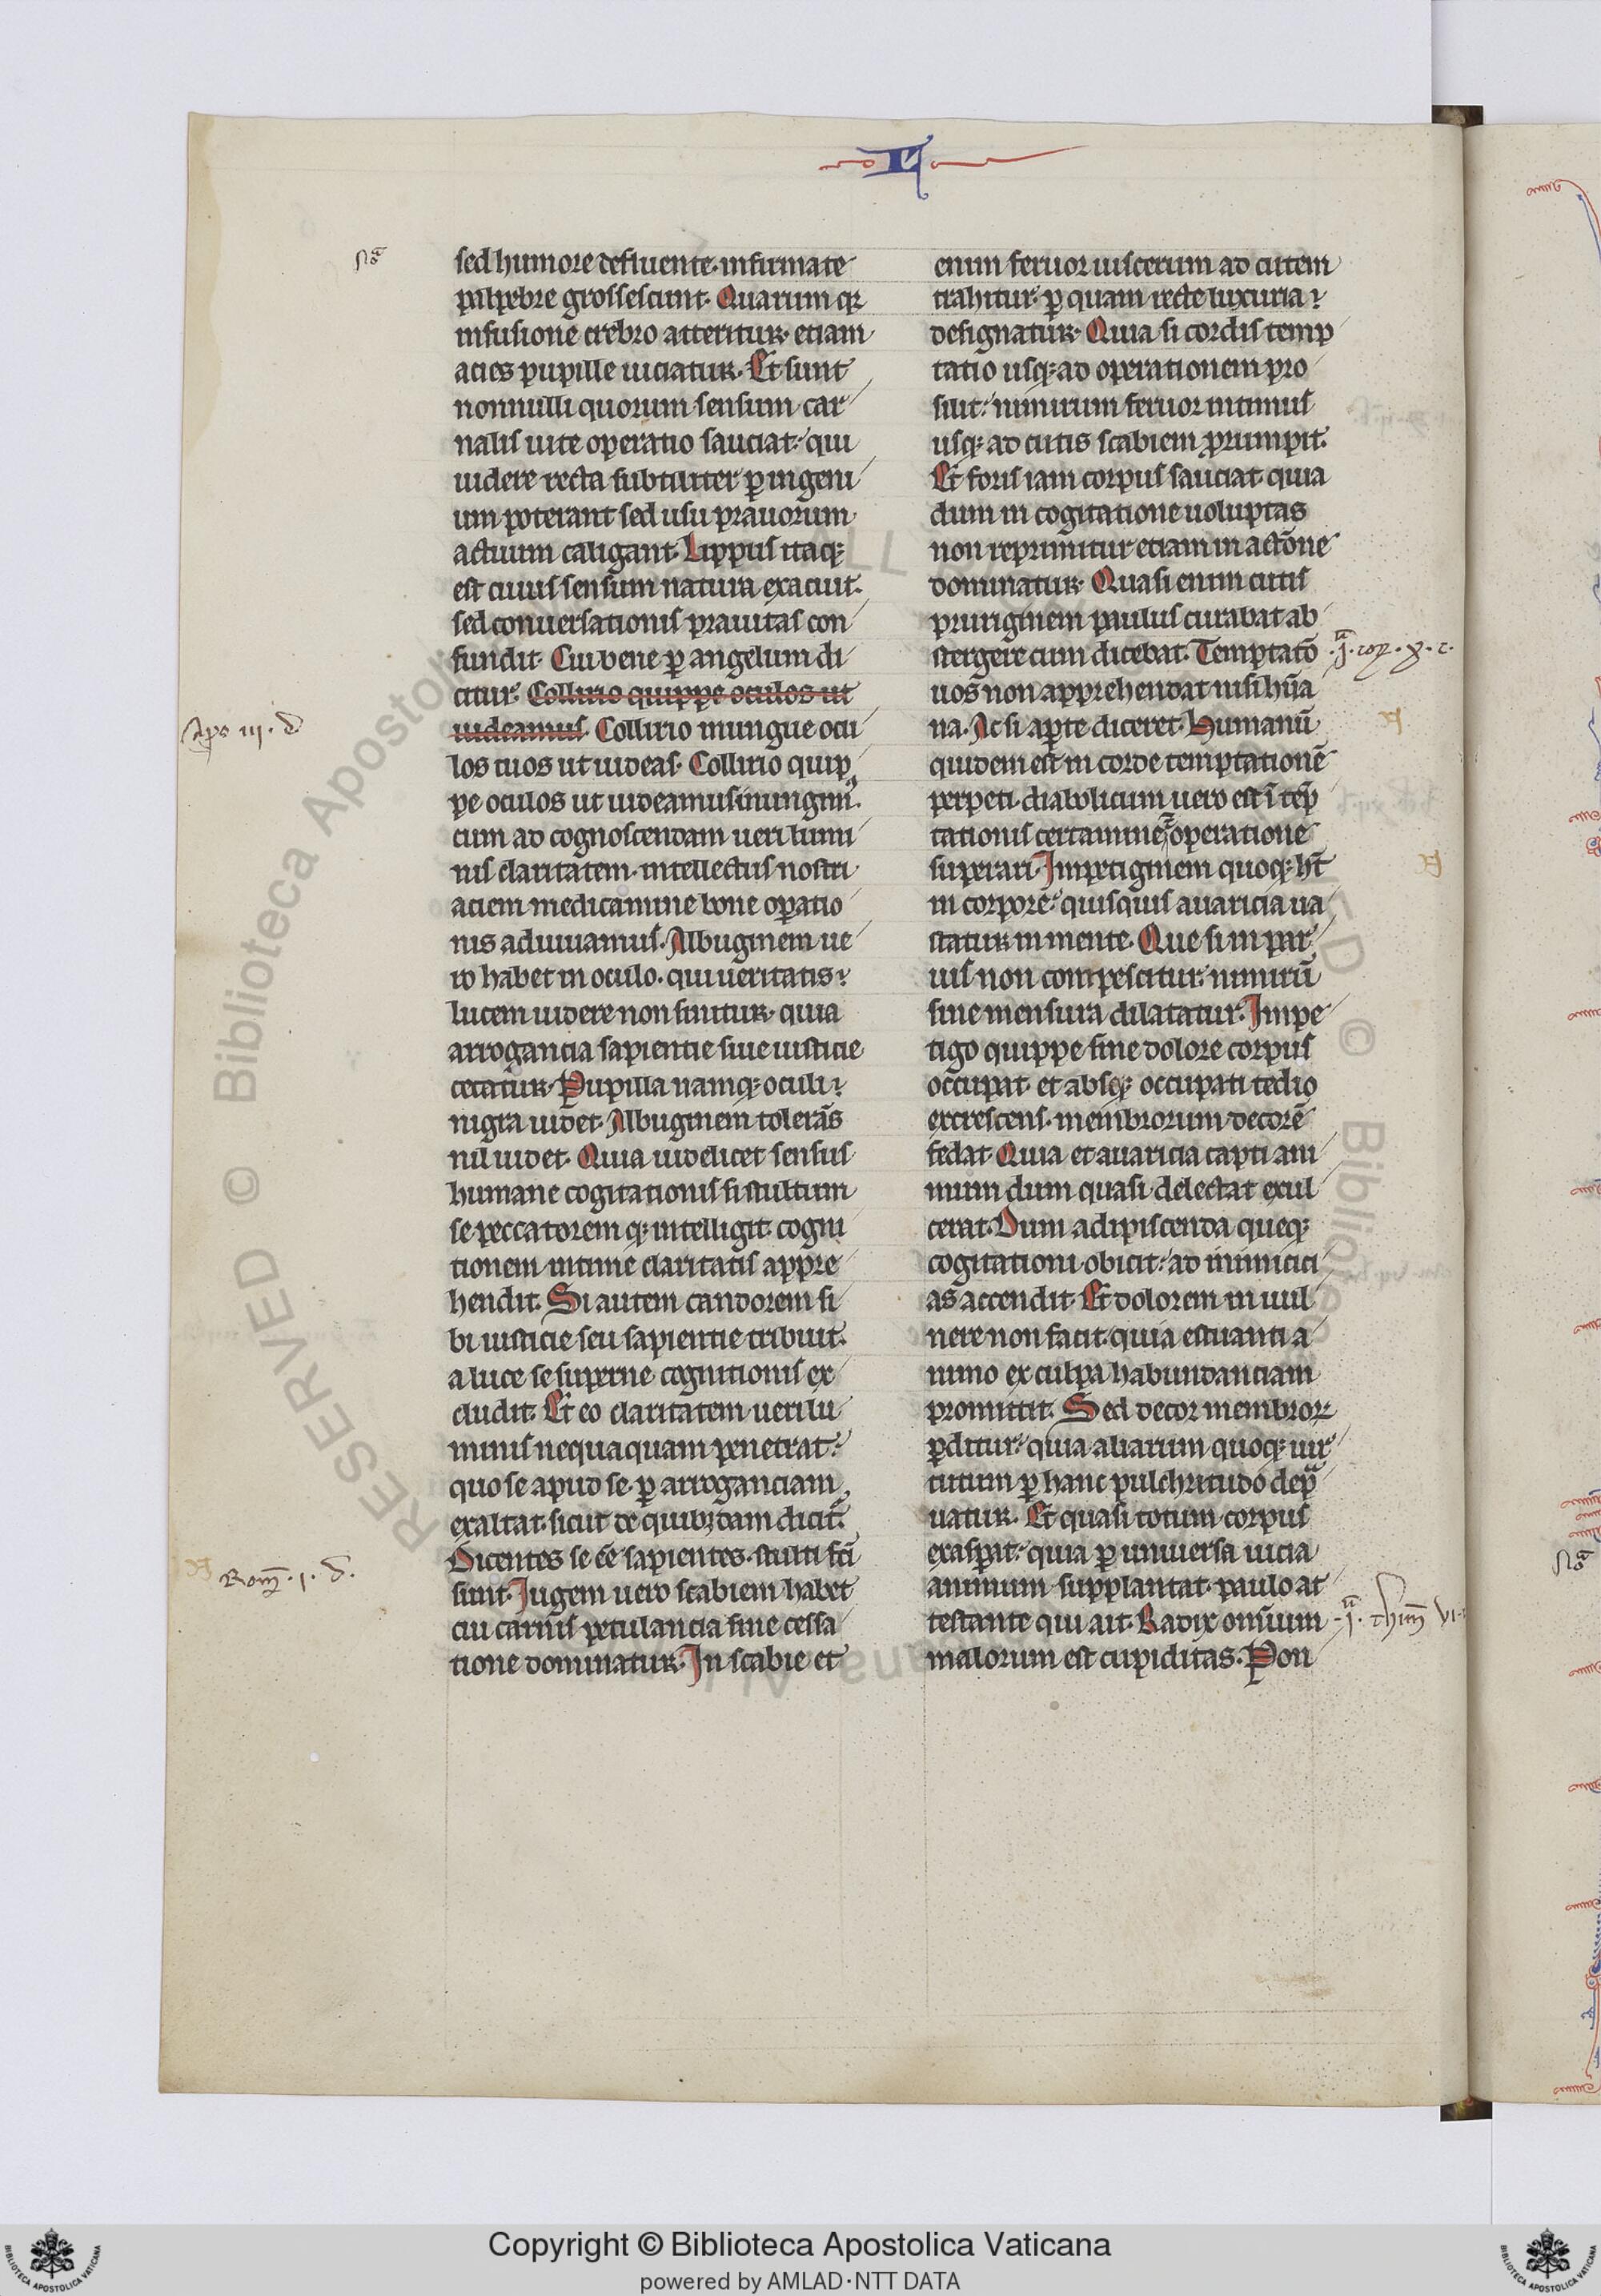 sed humore defluente· infirmate
palpebre grossescunt· Quarum qꝛ
infusione crebro atteritur· etiam
acies pupille uiciatur· Et sunt
nonnulli quorum sensum car
nalis uite operatio sauciat· qui
uidere recta subtiliter ꝑ ingeni
um poterant sed usu prauorum
actuum caligant· Lippus itaqꝫ
est cuius sensum natura exacuit·
sed conuersationis prauitas con
fundit· Cui bene ꝑ angelum di
citur· Collirio quippe oculos ut
uideamus· Collirio inungue ocu
los tuos ut uideas· Collirio quip
pe oculos ut uideamus inungimꝰ·
cum ad cognoscendam ueri lumi
nis claritatem· intellectus nostri
aciem medicamine bone oꝑatio
nis adiuuamus· Albuginem ue
ro habet in oculo· qui ueritatis
lucem uidere non sinitur· quia
arrogancia sapientie siue iusticie
cecatur· Pupilla namqꝫ oculi
nigra uidet· Albuginem tolerās
nil uidet· Quia uidelicet sensus
humane cogitationis si stultum
se peccatorem qꝫ intelligit· cogni
tionem intime claritatis appre
hendit· Si autem candorem si
bi iusticie seu sapientie tribuit·
a luce se superne cognitionis ex
cludit· Et eo claritatem ueri lu
minis nequaquam penetrat·
quo se apud se· ꝑ arroganciam
exaltat· sicut de quibꝫdam dicit̄·
Dicentes se eē sapientes· stulti fc̄i
sunt· Jugem uero scabiem habet
cui carnis petulancia sine cessa
tione dominatur· In scabie et
enim feruor uiscerum ad cutem
trahitur· ꝑ quam recte luxuria
designatur· Quia si cordis temp
tatio usqꝫ ad operationem pro
silit· nimirum feruor intimus
usqꝫ ad cutis scabiem prumpit·
Et foris iam corpus sauciat· quia
dum in cogitatione uoluptas
non reprimitur etiam in actōne
dominatur· Quasi enim cutis
pruriginem paulus curabat ab
stergere cum dicebat· Temptatō
uos non apprehendat nisi hūa
na· Ac si aꝑte diceret· Humanū
quidem est in corde temptationē
perpeti· diabolicum uero est ī tēp
tationis certamine operatione
superari· Impetiginem quoqꝫ ht̄
in corpore· quisquis auaricia ua
statur in mente· Que si in par
uis non compescitur· nimirū
sine mensura dilatatur· Impe
tigo quippe sine dolore corpus
occupat· et absqꝫ occupati tedio
excrescens· membrorum decorē
fedat· Quia et auaricia capti ani
mum dum quasi delectat exul
cerat· Dum adipiscenda queqꝫ
cogitationi obicit· ad inimicici
as accendit· Et dolorem in uul
nere non facit· quia estuanti a
nimo ex culpa habundanciam
promittit· Sed decor membroꝝ
ꝑditur· quia aliarum quoqꝫ uir
tutum ꝑ hanc pulchritudo depͣ
uatur· Et quasi totum corpus
exasꝑat· quia ꝑ uniuersa uicia
animum supplantat· paulo at
testante qui ait· Radix om̄ium
malorum est cupiditas· Pon
Apo iij· d
Rom̄·i·d·
·i·ͣ thim̄ vi·
Copyright © Biblioteca Apostolica Vaticana
powered by AMLAD·NTT DATA